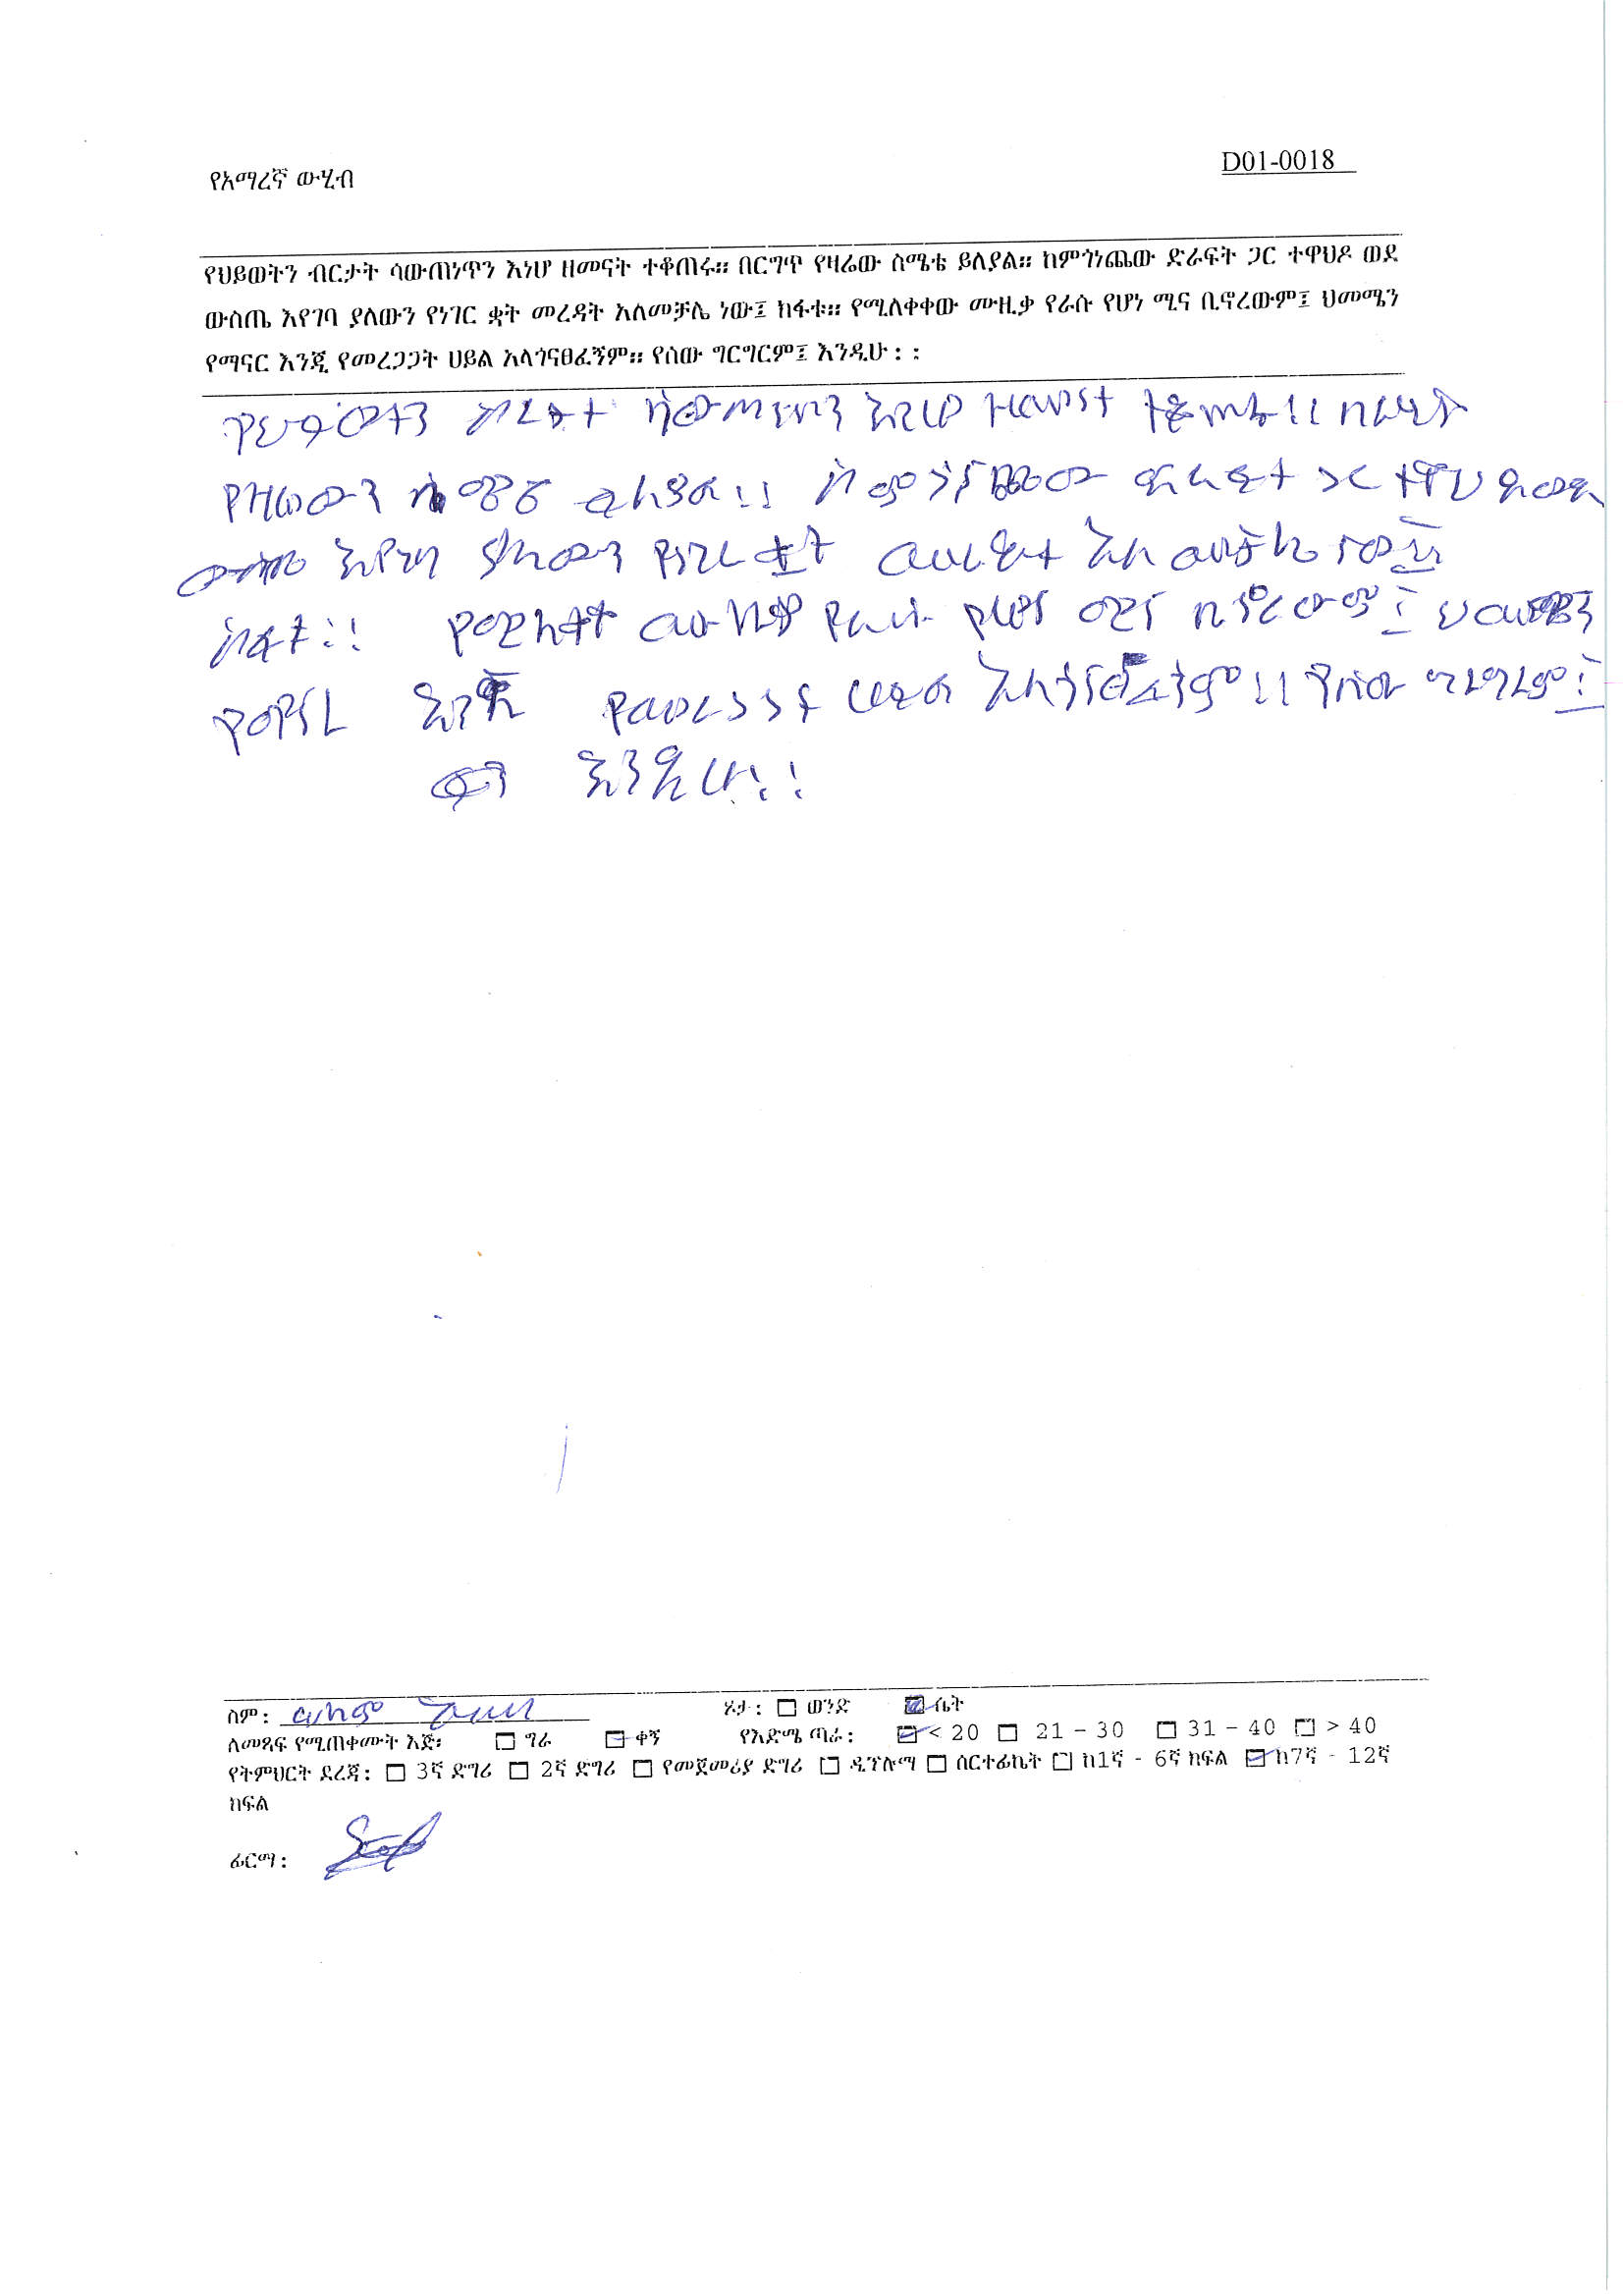 የአማረኛ ውሂብ
D01-0018
የህይወትን ብርታት ሳውጠነጥን እነሆ ዘመናት ተቆጠሩ። በርግጥ የዛሬው ስሜቴ ይለያል። ከምጎነጨው ድራፍት ጋር ተዋህዶ ወደ
ውስጤ እየገባ ያለውን የነገር ቋት መረዳት አለመቻሌ ነው፤ ከፋቱ። የሚለቀቀው ሙዚቃ የራሱ የሆነ ሚና ቢኖረውም፤ ህመሜን
የማናር እንጂ የመረጋጋት ሀይል አላጎናፀፈኝም። የሰው ግርግርም፤ እንዲሁ: :
የህይወትን ብርታት ሳውጠነጥን እነሆ ዘመናት ተቆጠሩ:: በርግጥ
የዛሬውን ስሜቴ ይለያል:: ከምጎነጨው ድራፍት ጋር ተዋህዶ ወደ
ውስጤ እየገባ ያለውን የነገር ቋት መረዳት አለመቻሌ ነው፤
ከፋቱ:: የሚለቀቀ ሙዚቃ የራሱ የሆነ ሚና ቢኖረውም፤ ህመሜን
የማናር እንጂ የመረጋጋት ሀይል አላጎናፀፈኝም:: የሰው ግርግርም፤
እንዲሁ::
ስም: ሰላም
ጾታ: ☐ ወንድ ☑ ሴት
ለመጻፍ የሚጠቀሙት እጅ፡ ☐ ግራ ☑ ቀኝ የእድሜ ጣራ: ☑ < 20 ☐ 21 - 30 ☐ 31 - 40 ☐ > 40
የትምህርት ደረጃ: ☐ 3ኛ ድግሪ ☐ 2ኛ ድግሪ ☐ የመጀመሪያ ድግሪ ☐ ዲፕሎማ ☐ ሰርተፊኬት ☐ ከ1ኛ - 6ኛ ክፍል ☑ ከ7ኛ - 12ኛ
ክፍል
ፊርማ: